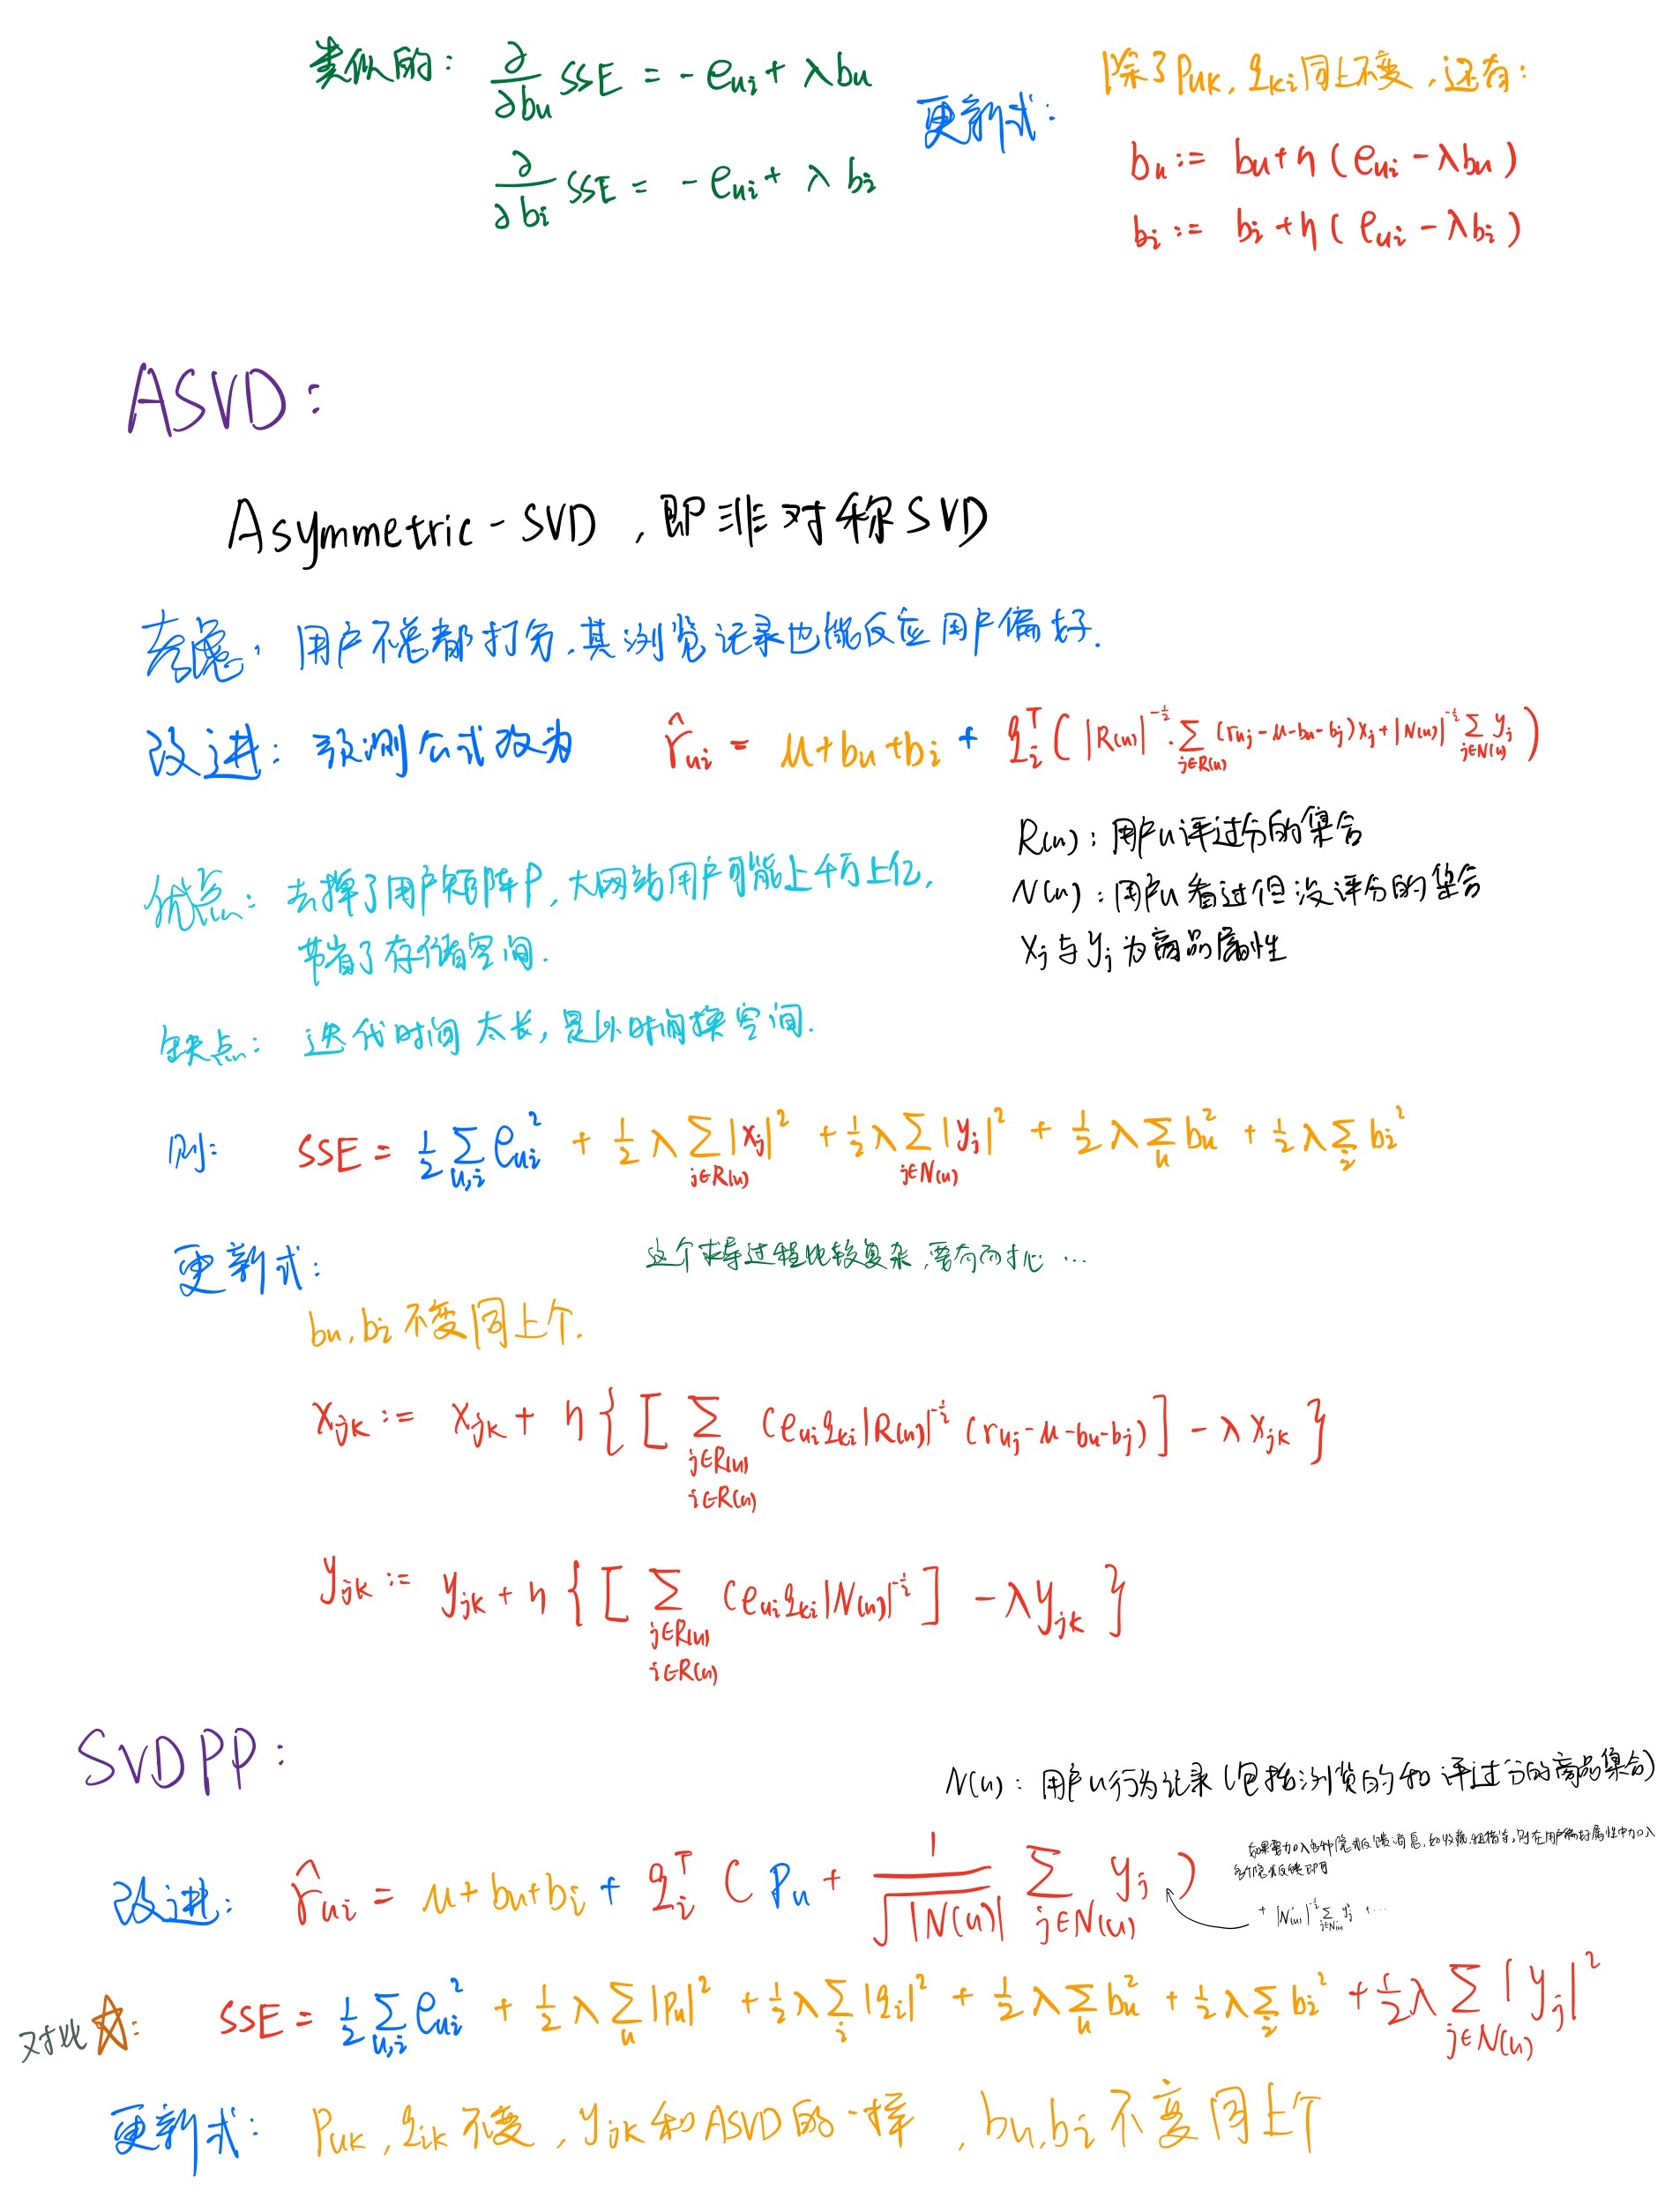 类似的: ∂/∂bu SSE = - eui + λbu
∂/∂bi SSE = - eui + λ bi
更新式:
除了Puk, qki同上不变,还有:
bu := bu+η(eui - λbu)
bi := bi+η(eui - λbi)
ASVD:
Asymmetric - SVD ,即非对称SVD
考虑: 用户不总都打分,其浏览记录也能反应用户偏好.
改进: 预测公式改为 r̂ui = μ+bu+bi + qi^T ( |R(u)|^-½ · ∑j∈R(u) (ruj - μ - bu - bj)xj + |N(u)|^-½ ∑j∈N(u) yj )
R(u): 用户u评过分的集合
N(u): 用户u看过但没评分的集合
xj与yj为商品属性
优点: 去掉了用户矩阵P,大网站用户可能上千万上亿,
节省了存储空间.
缺点: 迭代时间太长,是以时间换空间.
则: SSE = ½ ∑u,i eui² + ½ λ ∑j∈R(u) |xj|² + ½ λ ∑j∈N(u) |yj|² + ½ λ ∑u bu² + ½ λ ∑i bi²
更新式: 这个求导过程比较复杂,要有耐心 ...
bu,bi不变同上个.
xjk := xjk + η { [ ∑j∈R(u) i∈R(u) (eui qki |R(u)|^-½ (ruj - μ - bu - bj) ] - λ xjk }
yjk := yjk + η { [ ∑j∈R(u) i∈R(u) (eui qki |N(u)|^-½ ] - λ yjk }
SVDPP:
N(u): 用户u行为记录(包括浏览的和评过分的商品集合)
如果要加入多种隐式反馈消息,如收藏,则在用户偏好属性中加入
多个隐式反馈即可
+ |N(u)|^-½ ∑j∈N(u) yj + ...
改进: r̂ui = μ+bu+bi + qi^T ( Pu + 1/√|N(u)| ∑j∈N(u) yj )
对比☆: SSE = ½ ∑u,i eui² + ½ λ ∑u |Pu|² + ½ λ ∑i |qi|² + ½ λ ∑u bu² + ½ λ ∑i bi² + ½ λ ∑j∈N(u) |yj|²
更新式: Puk, qik不变, yjk和ASVD的一样, bu,bi不变同上个